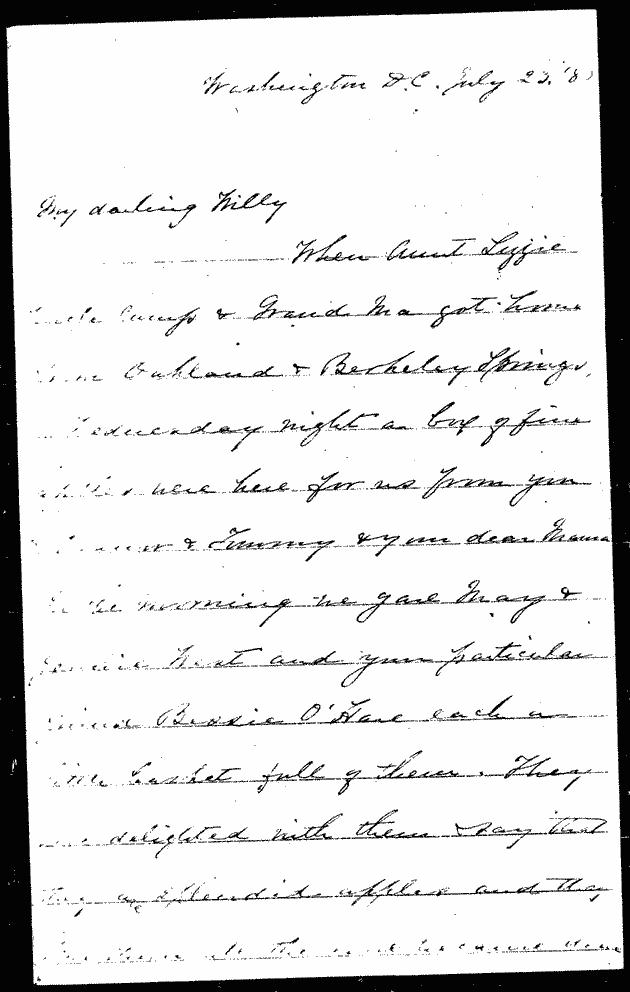 Washington D.C. July 23. '8
My darling Willy
When Aunt Lizzie
Uncle Camp & Grand Ma got home
from Oakland & Berkeley Springs,
Wednesday night a box of fine
apples were here for us from you
& Tommy & your dear Mama
In the morning we gave May &
Jennie West and your particular
friend Bessie O'Hare each a
little basket full of them. They
delighted with them & say that
they are splendid apples and they
them all the